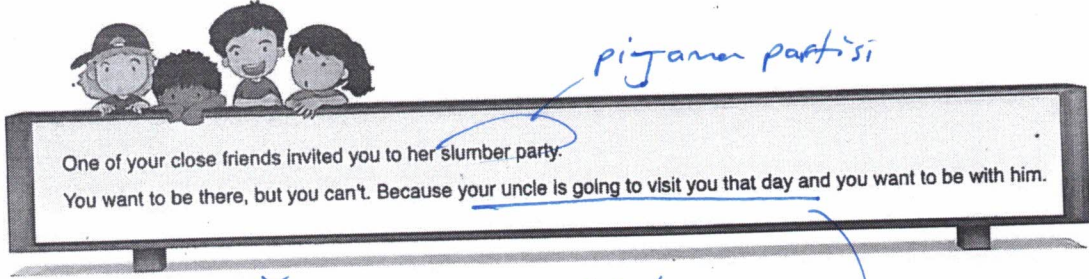 pijama partisi
One of your close friends invited you to her slumber party.
You want to be there, but you can't. Because your uncle is going to visit you that day and you want to be with him.